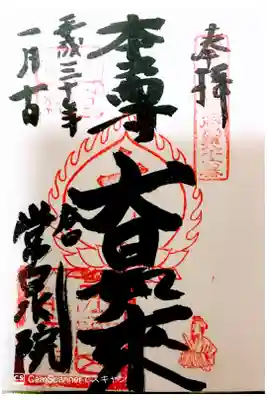 奉拝
本尊
大日如来
平成三十年
一月十一日
常泉院
CamScannerでスキャン